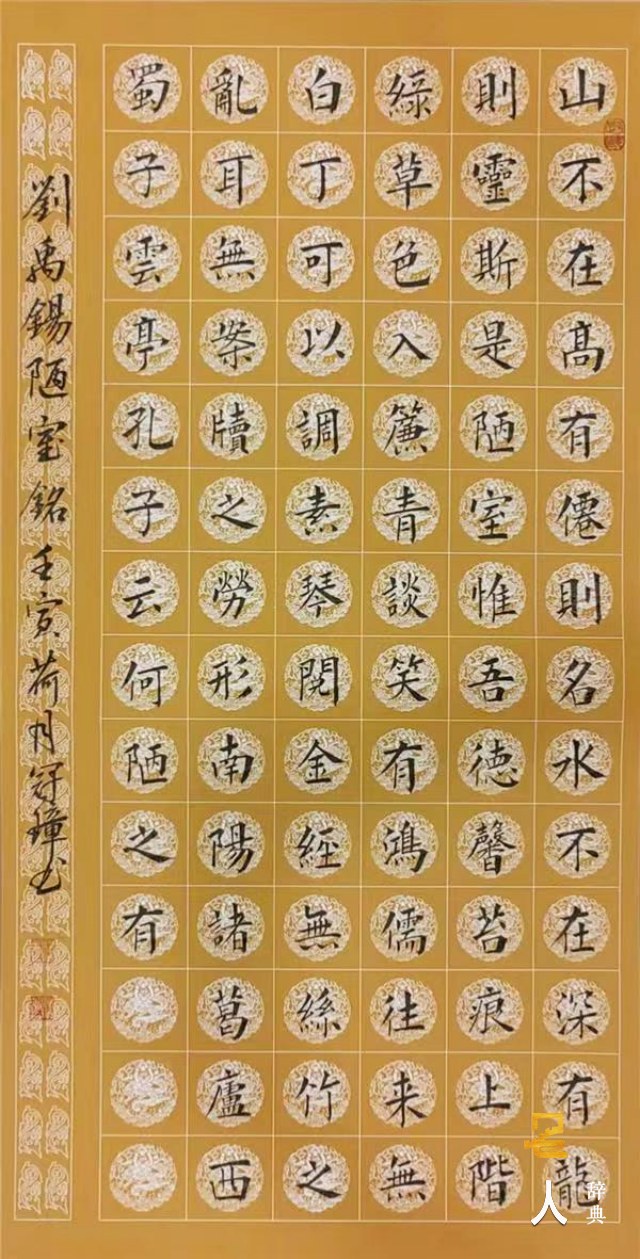 山不在高有僊則名水不在深有龍
則靈斯是陋室惟吾德馨苔痕上階
綠草色入簾青談笑有鴻儒往来無
白丁可以調素琴閱金經無絲竹之
亂耳無案牘之勞形南陽諸葛廬西
蜀子雲亭孔子云何陋之有
劉禹錫陋室銘壬寅荷月冠璋书
人
辞典